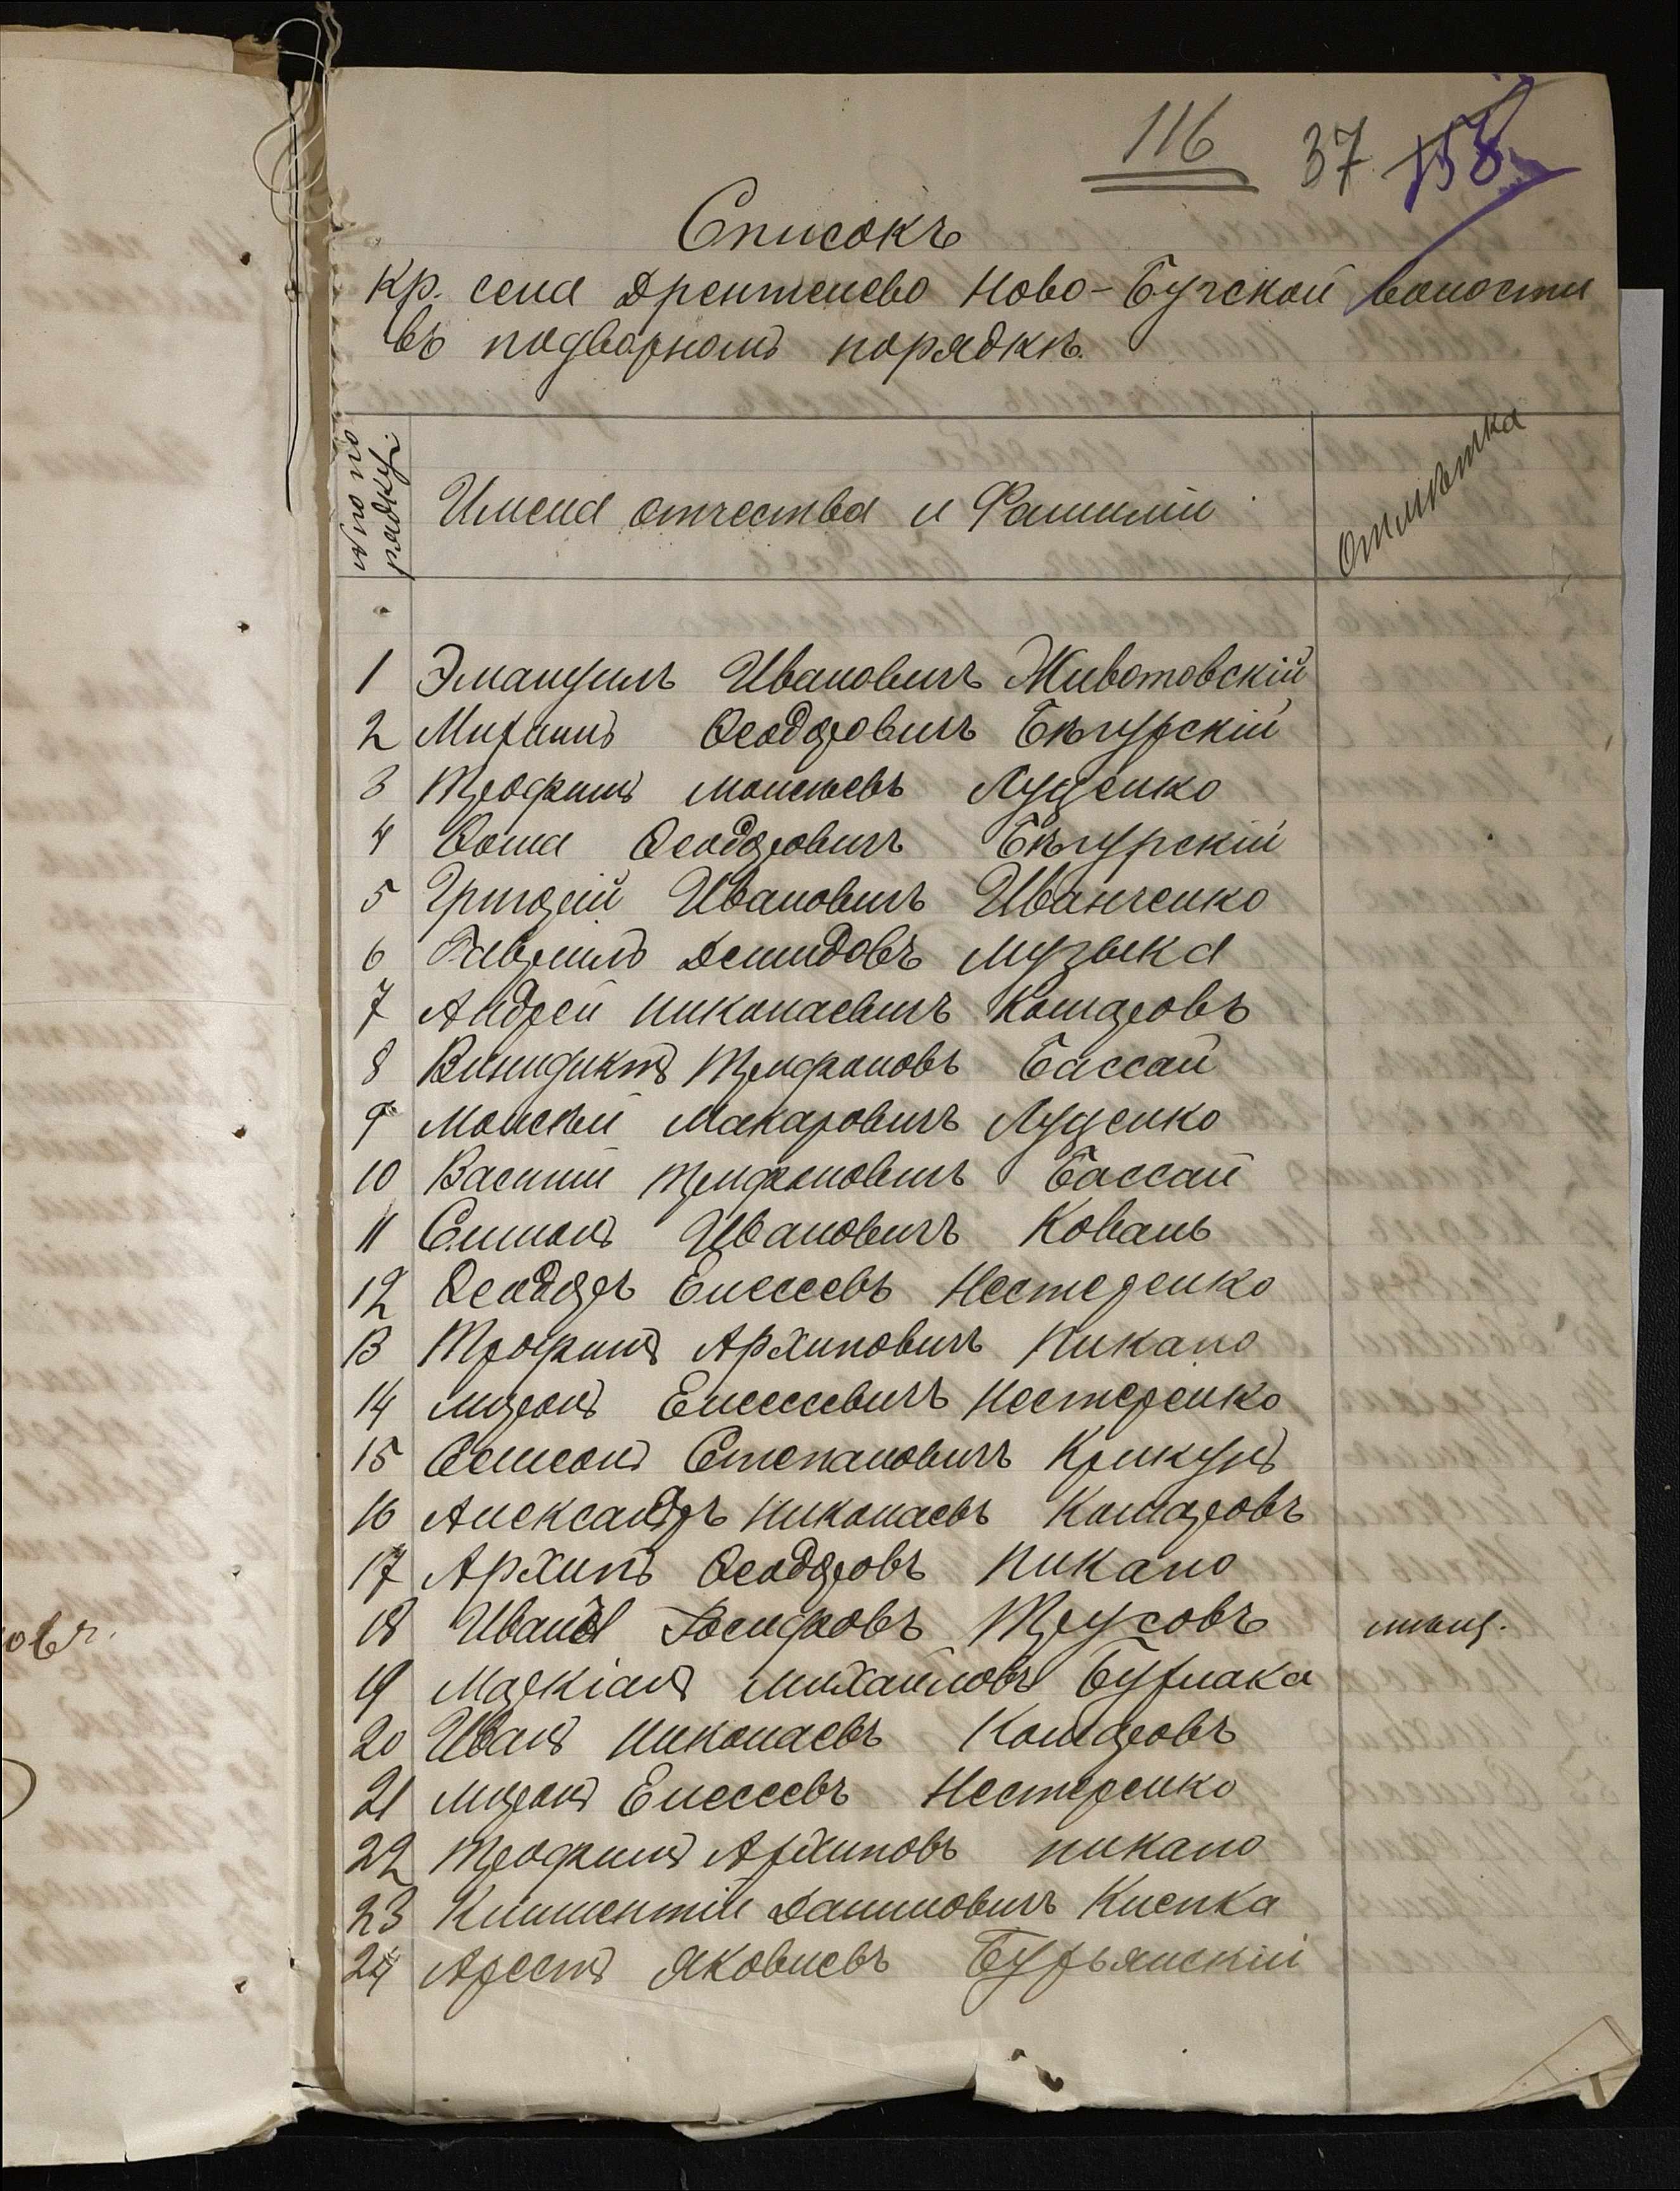 116 37. 158
Списокъ
кр. села Дрентелево Ново-Бугской волости
въ подворномъ порядкѣ.
№ по по
рядку
Имена отчества и Фамилiи
Отмѣтка
1 Эмануилъ Ивановичъ Животовскій
2 Михаилъ Ѳеодоровичъ Бѣгурскій
3 Трофимъ Моисѣевъ Луценко
4 Ѳома Ѳеодоровичъ Бѣгурскій
5 Григорій Ивановичъ Иванченко
6 Гавріилъ Демидовъ Музыка
7 Андрей Николаевичъ Комаровъ
8 Винидиктъ Трифоновъ Бассай
9 Моисѣй Макаровичъ Луценко
10 Василій Трифоновичъ Бассай
11 Симонъ Ивановичъ Коваль
12 Ѳеодоръ Елесеевъ Нестеренко
13 Трофимъ Архиповичъ Пикало
14 Миронъ Елесеевичъ Нестеренко
15 Самсонъ Степановичъ Крикунъ
16 Александръ Николаевъ Комаровъ
17 Архипъ Ѳеодоровъ Пикало
18 Иванъ Іосифовъ Трусовъ мѣщ.
19 Маркіанъ Михайловъ Бурлака
20 Иванъ Николаевъ Комаровъ
21 Миронъ Елесеевъ Нестеренко
22 Трофимъ Архиповъ Пикало
23 Климентій Даниловичъ Клепка
24 Арестъ Яковлевъ Бурьянскій
овъ.